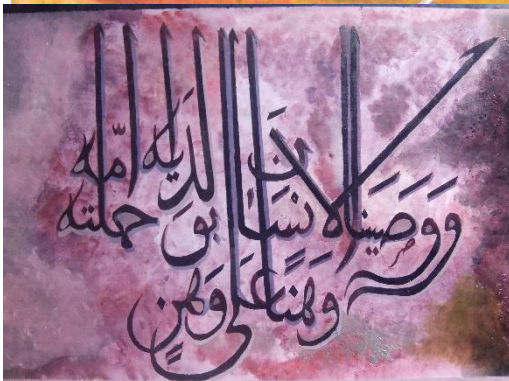 وَوَصَّيْنَا الْإِنسَانَ بِوَالِدَيْهِ حَمَلَتْهُ أُمُّهُ
وَهْنًا عَلَىٰ وَهْنٍ